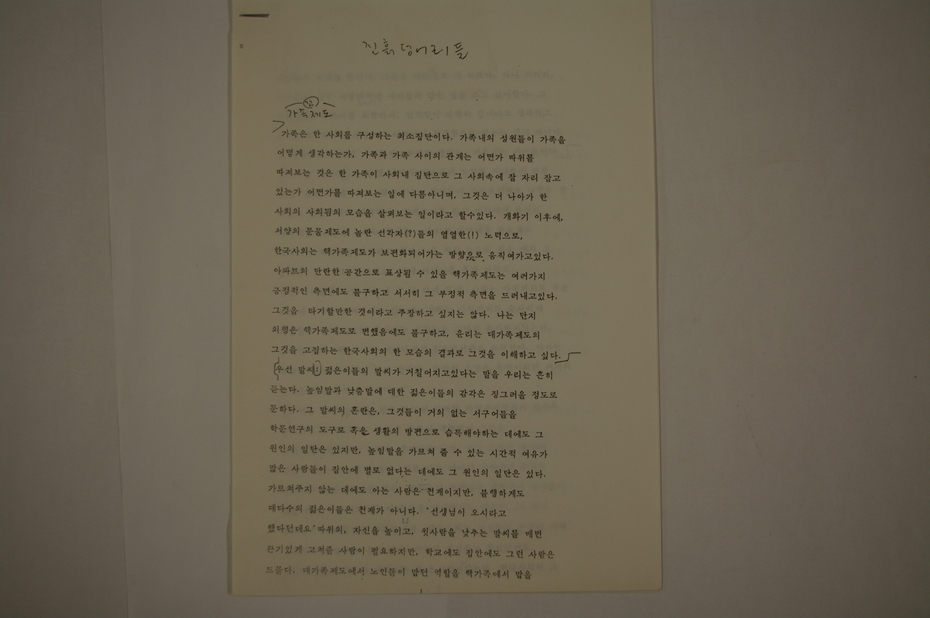 진흙덩어리들
가족제도
가족은 한 사회를 구성하는 최소집단이다. 가족내의 성원들이 가족을
어떻게 생각하는가, 가족과 가족 사이의 관계는 어떤가 따위를
따져보는 것은 한 가족이 사회내 집단으로 그 사회속에 잘 자리 잡고
있는가 어떤가를 따져보는 일에 다름아니며, 그것은 더 나아가 한
사회의 사회됨의 모습을 살펴보는 일이라고 할수있다. 개화기 이후에,
서양의 문물제도에 눈뜬 선각자(?)들의 열렬한(!) 노력으로,
한국사회는 핵가족제도가 보편화되어가는 방향으로 움직여가고있다.
아파트의 단란한 공간으로 표상될 수 있을 핵가족제도는 여러가지
긍정적인 측면에도 불구하고 서서히 그 부정적 측면을 드러내고있다.
그것을 타기할만한 것이라고 주장하고 싶지는 않다. 나는 단지
외형은 핵가족제도로 변했음에도 불구하고, 윤리는 대가족제도의
그것을 고집하는 한국사회의 한 모습의 결과로 그것을 이해하고 싶다.
우선 말씨: 젊은이들의 말씨가 거칠어지고있다는 말을 우리는 흔히
듣는다. 높임말과 낮춤말에 대한 젊은이들의 감각은 징그러울 정도로
둔하다. 그 말씨의 혼란은, 그것들이 거의 없는 서구어들을
학문연구의 도구로 혹은 생활의 방편으로 습득해야하는 데에도 그
원인의 일단은 있지만, 높임말을 가르쳐 줄 수 있는 시간적 여유가
많은 사람들이 집안에 별로 없다는 데에도 그 원인의 일단은 있다.
가르쳐주지 않는 데에도 아는 사람은 천재이지만, 불행하게도
대다수의 젊은이들은 천재가 아니다. '선생님이 오시라고
했다던데요'따위의, 자신을 높이고, 윗사람을 낮추는 말씨를 매번
끈기있게 고쳐줄 사람이 필요하지만, 학교에도 집안에도 그런 사람은
드물다. 대가족제도에서 노인들이 맡던 역할을 핵가족에서 맡을